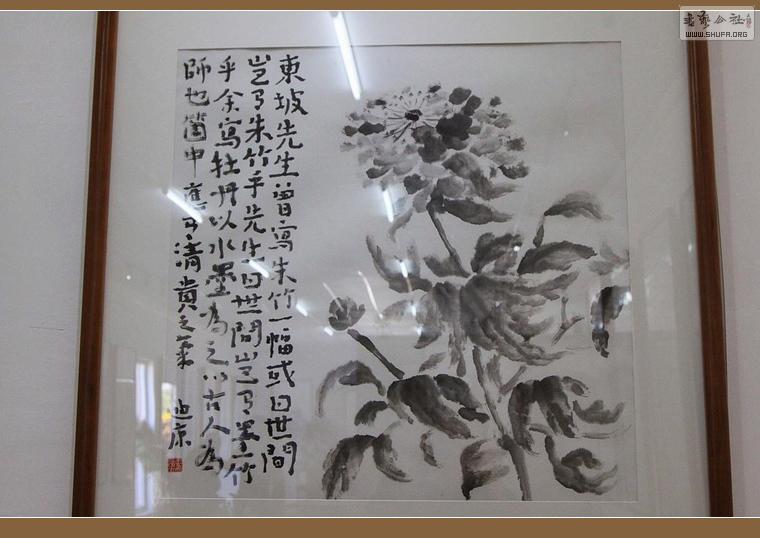 東坡先生曾寫朱竹一幅或曰世間
豈有朱竹乎先生曰世間豈有墨竹
乎余寫牡丹以水墨為之以古人為
師也箇中應有清貴之氣
迪康
書藝公社
WWW.SHUFA.ORG